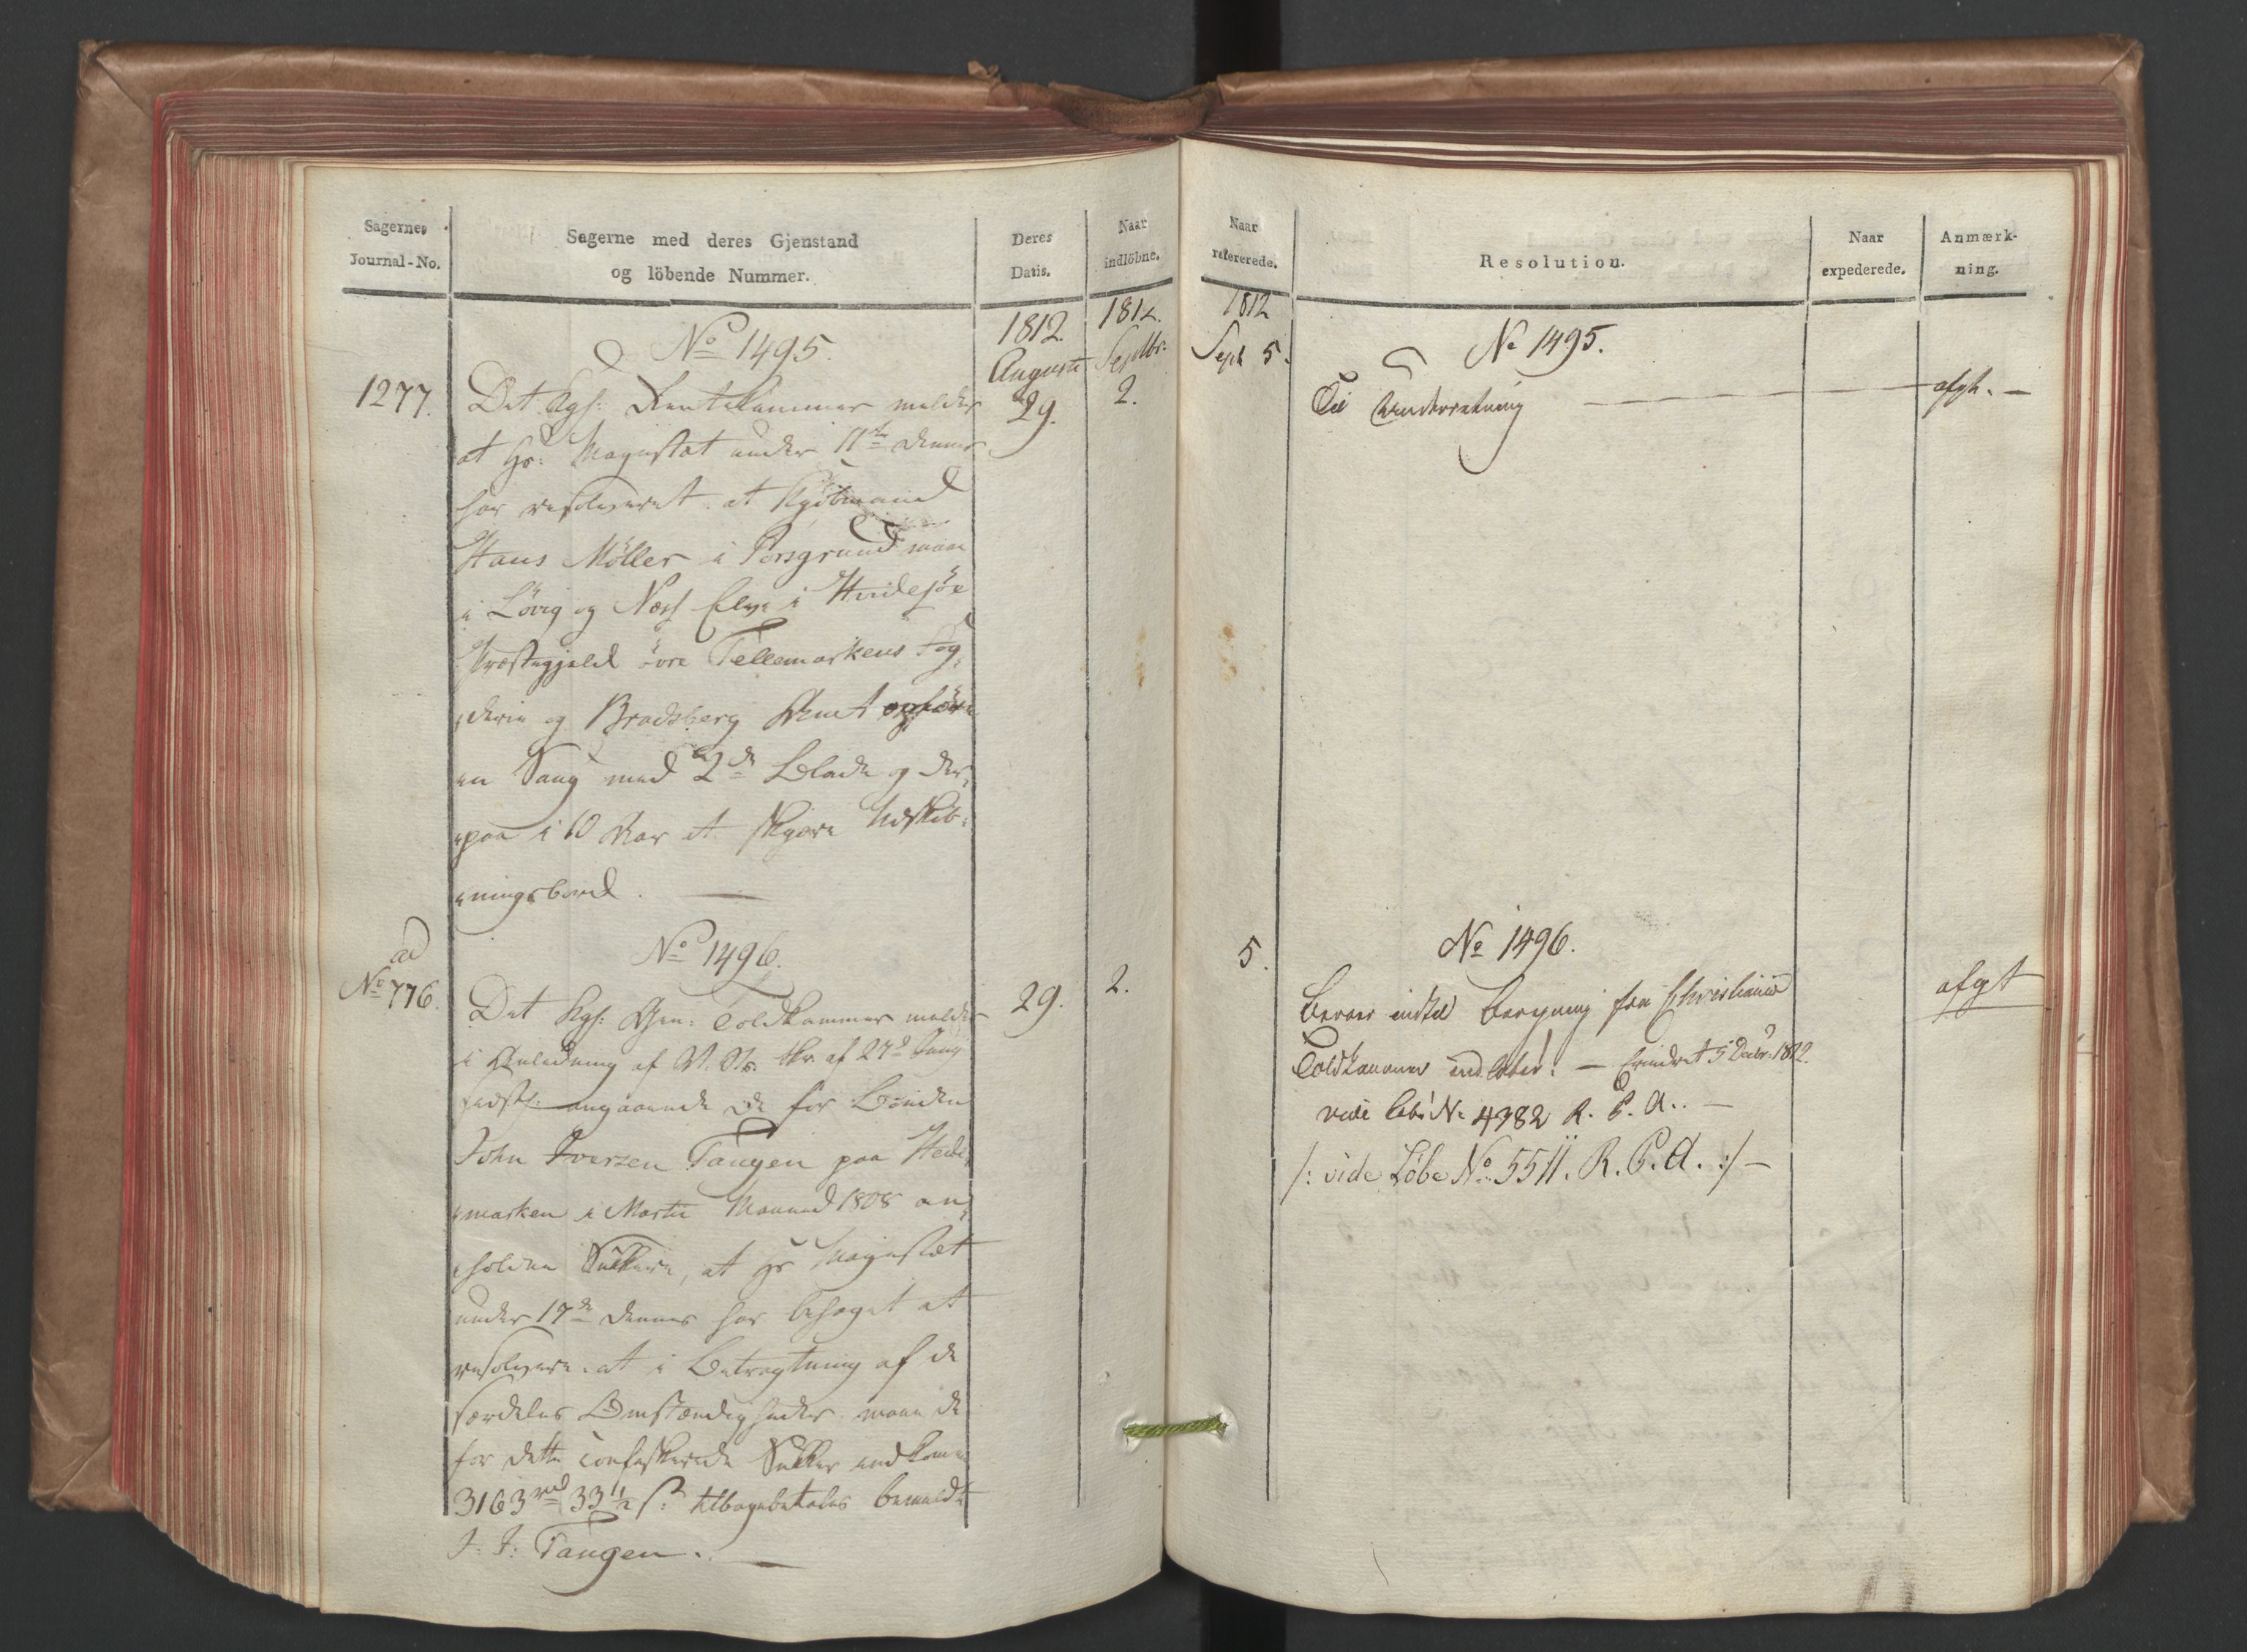 Sagernes
Journal-No.
Sagerne med deres Gjenstand
og löbende Nummer.
Deres
Datis.
Naar
indlöbne.
1812.
Auguste
1812.
Septbr.
No 1495.
1277.
Det Kgl: Rentekammer melder
29.
2.
at Hs: Majestæt under 11te dennes
har resolveret at Kjöbmand
Hans Möller i Porsgrund maae
i Lövig og Næss Elve i Hvidesöe
Præstegjeld övre Tellemarkens Fog-
derie og Bradsberg Amt opföre
en Saug med 2de Blade og der-
paa i 10 Aar at skjære Udskib-
ningsbord. —
ad
No 776.
No 1496.
Det Kgl: Gen: Toldkammer melder
29.
2.
i Anledning af skr. af 27de
sidstl: angaaende de for Bonden
John Iversen Tangen paa Hede-
marken i Martii Maaned 1808 an-
holdne Sukkere, at Hs Majestæt
under 17de dennes har behaget at
resolvere: at i Betragtning af de
særdeles Omstændigheder maae de
for dette confiskerede Sukker indkomne
3163 rd 33 1/2 s: tilbagebetales bemeldte
J: I: Tangen. —
Naar
refererede.
Resolution.
Naar
expederede.
Anmærk-
ning.
1812
Sept 5.
No 1495.
Til Underretning — — — —
afgk. —
5.
No 1496.
Beroer indtil Beregning fra Christiania
afgt
Toldkammer indlöber. — Erindret 5 Decbr. 1812.
vide Lobe No 4382 R. P. A.. —
/: vide Löbe No 5511. R. P. A. :/ —